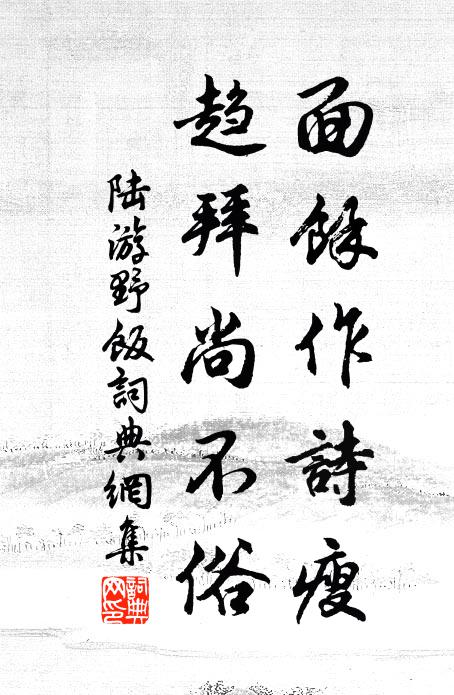 面餘作詩瘦
趋拜尚不俗
陆游野飯詞典網集
詞典
网印